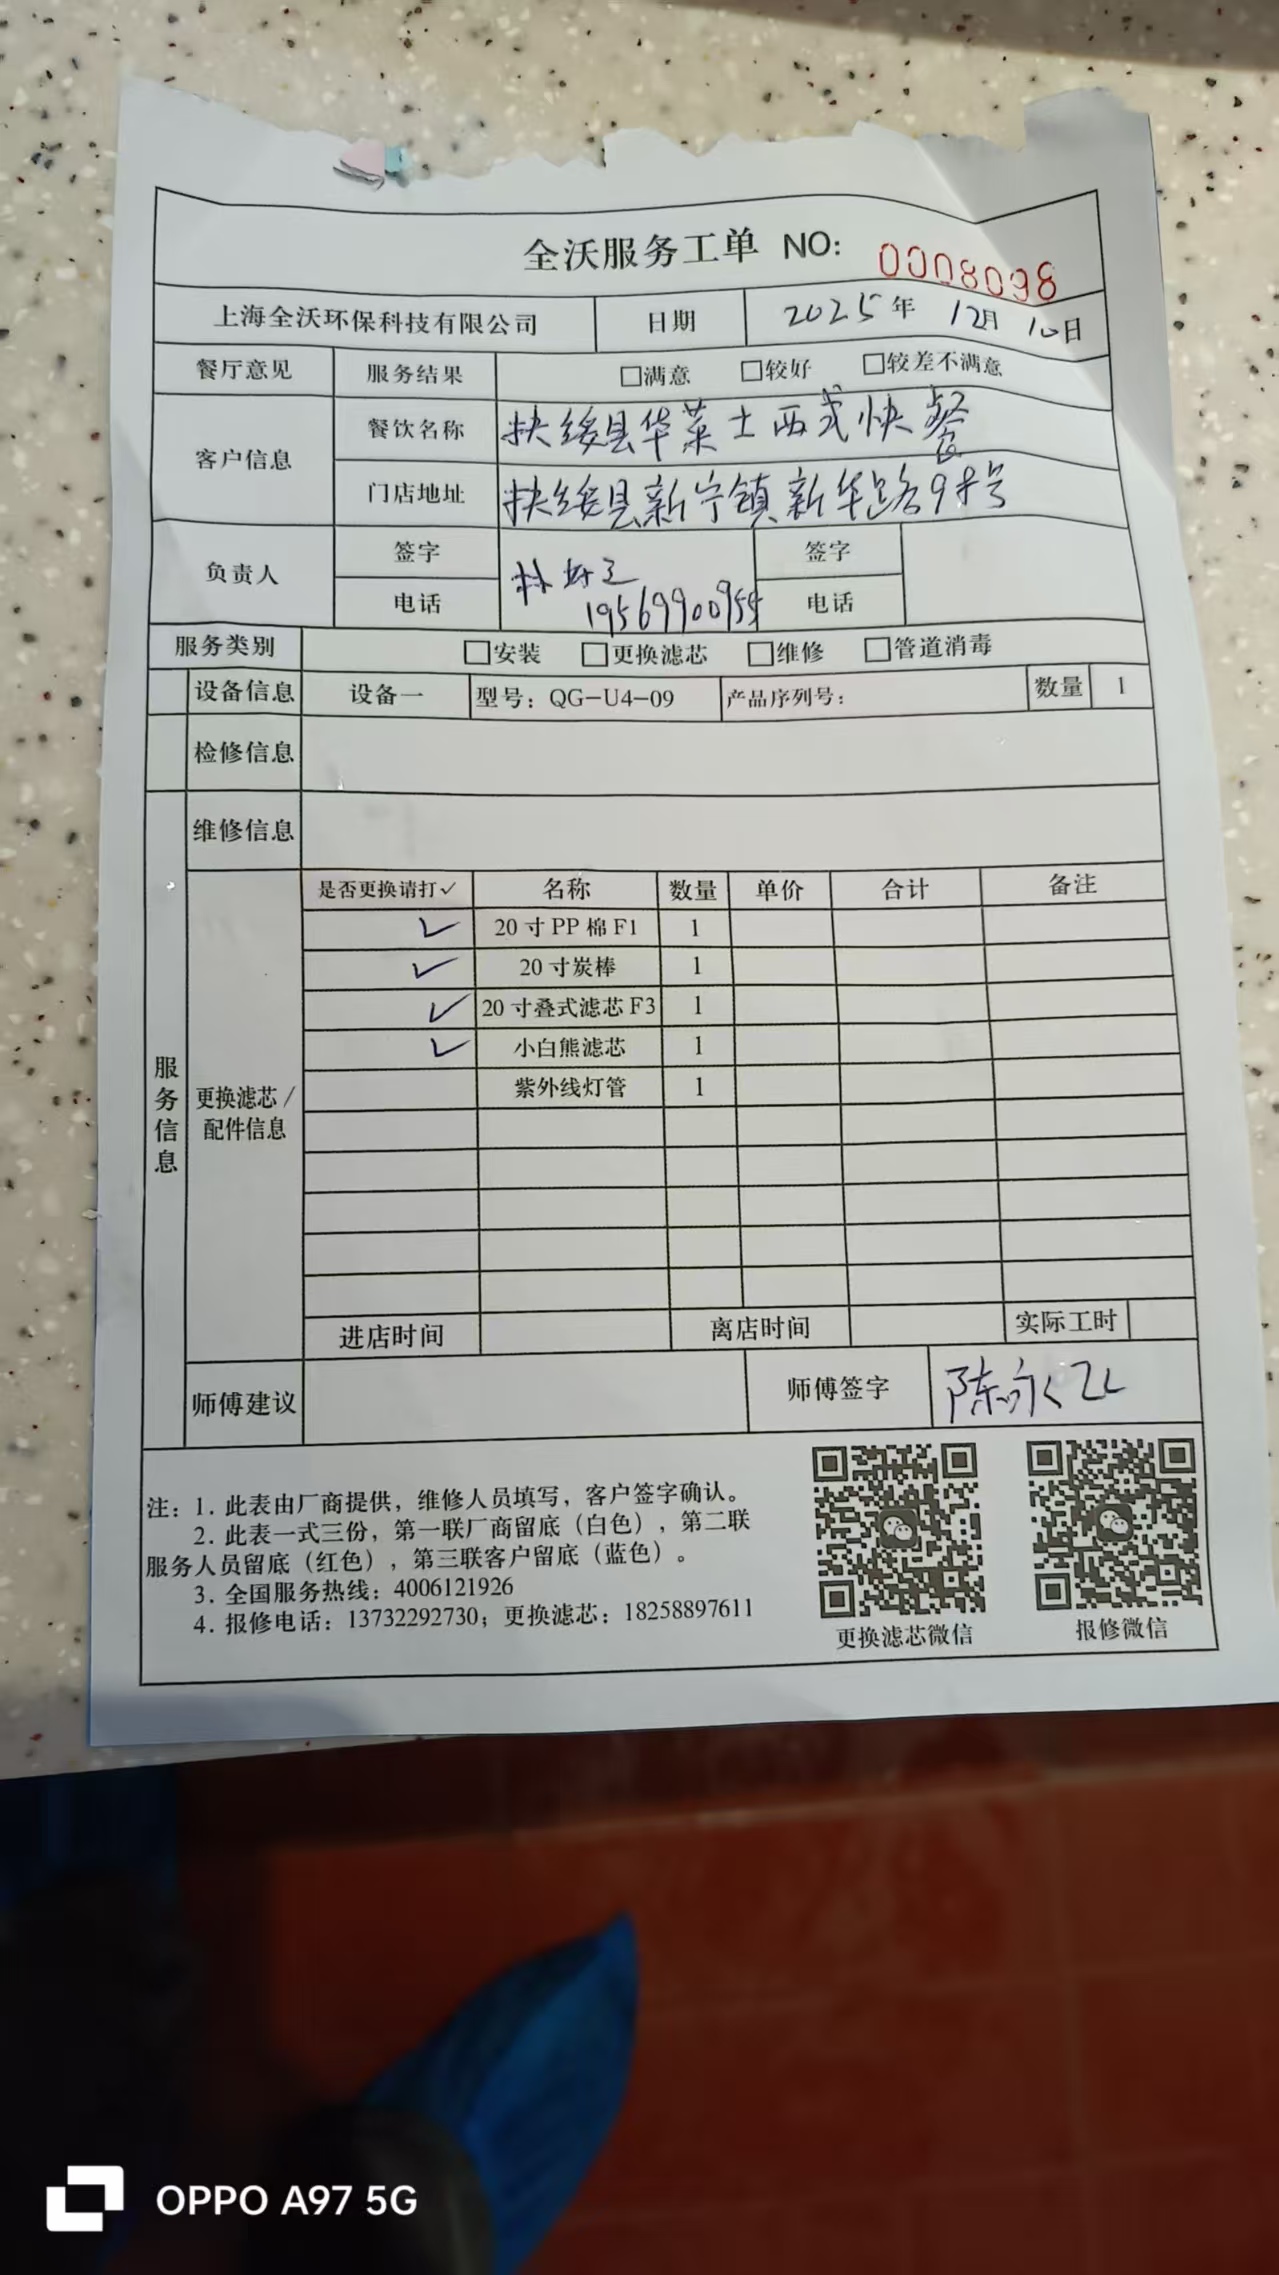 全沃服务工单 NO: 0008098
上海全沃环保科技有限公司 日期 2025年 12月 10日
餐厅意见 服务结果 □满意 □较好 □较差不满意
客户信息 餐饮名称 扶绥县华莱士西式快餐
门店地址 扶绥县新宁镇新华路98号
负责人 签字 林 签字
电话 19569900955 电话
服务类别 □安装 □更换滤芯 □维修 □管道消毒
设备信息 设备一 型号：QG-U4-09 产品序列号： 数量 1
检修信息
维修信息
服务信息
更换滤芯/配件信息
是否更换请打✓ 名称 数量 单价 合计 备注
✓ 20寸PP棉F1 1
✓ 20寸炭棒 1
✓ 20寸叠式滤芯F3 1
✓ 小白熊滤芯 1
紫外线灯管 1
进店时间 离店时间 实际工时
师傅建议 师傅签字 陈永
注：1. 此表由厂商提供，维修人员填写，客户签字确认。
2. 此表一式三份，第一联厂商留底（白色），第二联
服务人员留底（红色），第三联客户留底（蓝色）。
3. 全国服务热线：4006121926
4. 报修电话：13732292730；更换滤芯：18258897611
更换滤芯微信 报修微信
OPPO A97 5G